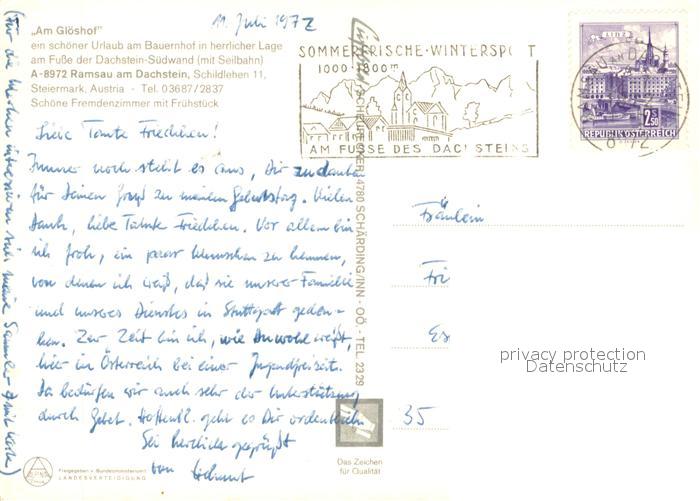 11. Juli 1972
„Am Glöshof"
ein schöner Urlaub am Bauernhof in herrlicher Lage
am Fuße der Dachstein-Südwand (mit Seilbahn)
A-8972 Ramsau am Dachstein, Schildlehen 11,
Steiermark, Austria - Tel. 03687/2837
Schöne Fremdenzimmer mit Frühstück
SOMMERFRISCHE-WINTERSPORT
1000-1800m
AM FUSSE DES DACHSTEINS
LINZ
2.50
REPUBLIK ÖSTERREICH
Liebe Tante Friedchen!
Immer noch steht es aus, Dir zu danken
für Deinen Gruß zu meinem Geburtstag. Vielen
Dank, liebe Tante Friedchen. Vor allem bin
ich froh, ein paar Menschen zu kennen,
von denen ich weiß, daß sie unserer Familie
und unseres Dienstes in Stuttgart geden-
ken. Zur Zeit bin ich, wie Du wohl weißt,
hier in Österreich bei einer Jugendfreizeit.
Da bedürfen wir auch sehr der Unterstützung
durch Gebet. Hoffentl. geht es Dir ordentlich
Sei herzlich gegrüßt
von Helmut
4780 SCHÄRDING/INN - OÖ. - TEL. 2329
Fräulein
Fri
Es
35
privacy protection
Datenschutz
Das Zeichen
für Qualität
Freigegeben v. Bundesministerium f.
LANDESVERTEIDIGUNG